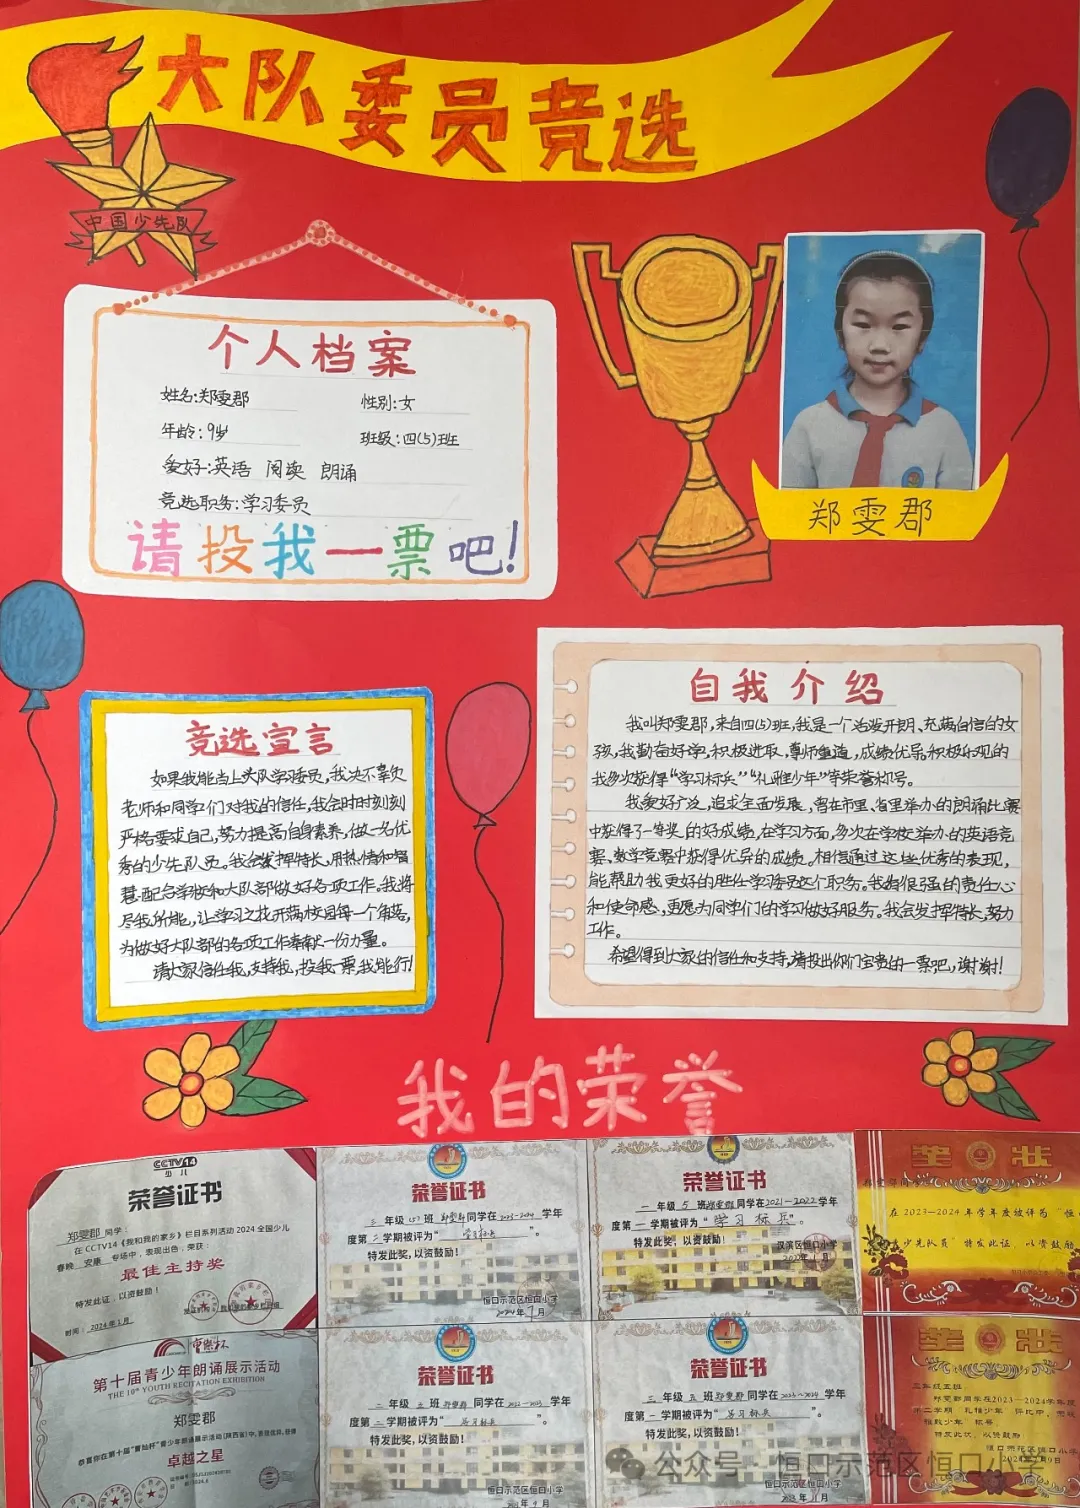 大队委员竞选
中国少先队
个人档案
姓名:郑雯郡 性别:女
年龄:9岁 班级:四(5)班
爱好:英语 阅读 朗诵
竞选职务:学习委员
请投我一票吧!
郑雯郡
竞选宣言
如果我能当上大队学习委员,我决不辜负
老师和同学们对我的信任,我会时时刻刻
严格要求自己,努力提高自身素养,做一名优
秀的少先队员。我会发挥特长,用热情和智
慧配合学校和大队部做好各项工作。我将
尽我所能,让学习之花开满校园每一个角落,
为做好大队部的各项工作奉献一份力量。
请大家信任我,支持我,投我一票,我能行!
自我介绍
我叫郑雯郡,来自四(5)班,我是一个活泼开朗、充满自信的女
孩,我勤奋好学,积极进取,尊师重道,成绩优异,积极乐观的
我多次获得“学习标兵”“礼雅少年”等荣誉称号。
我爱好广泛,追求全面发展,曾在市里、省里举办的朗诵比赛
中获得了一等奖的好成绩,在学习方面,多次在学校举办的英语竞
赛、数学竞赛中获得优异的成绩。相信通过这些优秀的表现,
能帮助我更好的胜任学习委员这个职务。我有很强的责任心
和使命感,更愿为同学们的学习做好服务。我会发挥特长,努力
工作。
希望得到大家的信任和支持,请投出你们宝贵的一票吧,谢谢!
我的荣誉
CCTV14
少儿
荣誉证书
郑雯郡 同学:
在CCTV14《我和我的家乡》栏目系列活动2024全国少儿
春晚 安康 专场中,表现出色,荣获:
最佳主持奖
特发此证,以资鼓励!
时间: 2024年1月
荣誉证书
三年级(5)班郑雯郡同学在2023-2024学年
度第二学期被评为“学习标兵”。
特发此奖,以资鼓励!
恒口示范区恒口小学
2024年7月
荣誉证书
一年级5班郑雯郡同学在2021-2022学年
度第一学期被评为“学习标兵”。
特发此奖,以资鼓励!
汉滨区恒口小学
2022年1月
奖状
在2023—2024年学年度被评为“恒
少先队员”特发此证,以资鼓励
第十届青少年朗诵展示活动
THE 10th YOUTH RECITATION EXHIBITION
郑雯郡
卓越之星
荣誉证书
二年级五班郑雯郡同学在2022-2023学年
度第一学期被评为“学习标兵”。
特发此奖,以资鼓励!
恒口示范区恒口小学
荣誉证书
三年级五班郑雯郡同学在2023-2024学年
度第一学期被评为“学习标兵”。
特发此奖,以资鼓励!
恒口示范区恒口小学
2023年11月
奖状
三年级五班
郑雯郡同学在2023—2024学年度
第二学期“礼雅少年”评比中,荣获
特发此状,以资鼓励
恒口示范区恒口小学
公众号 · 恒口示范区恒口小学